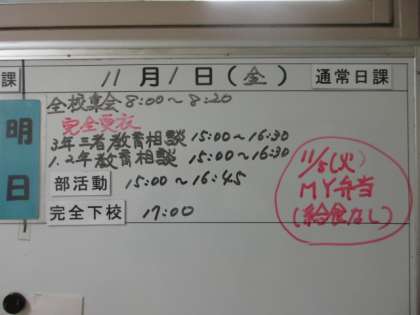 課 11月1日(金) 通常日課
明日
全校集会 8:00〜8:20
完全更衣
3年三者教育相談 15:00〜16:30
1.2年教育相談 15:00〜16:30
部活動 15:00〜16:45
完全下校 17:00
11/5(火)
MY弁当
(給食なし)